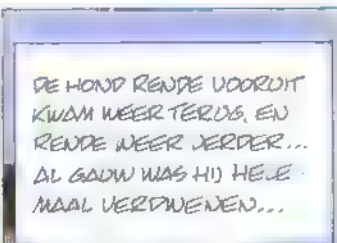 DE HOND RENDE VOORUIT
KWAM WEER TERUG, EN
RENDE WEER VERDER...
AL GAUW WAS HIJ HELE
MAAL VERDWENEN...